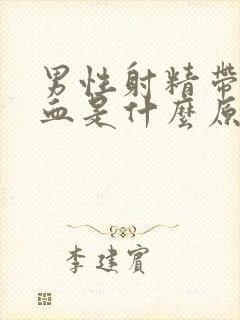 男性射精帶
血是什麼原
李建賓